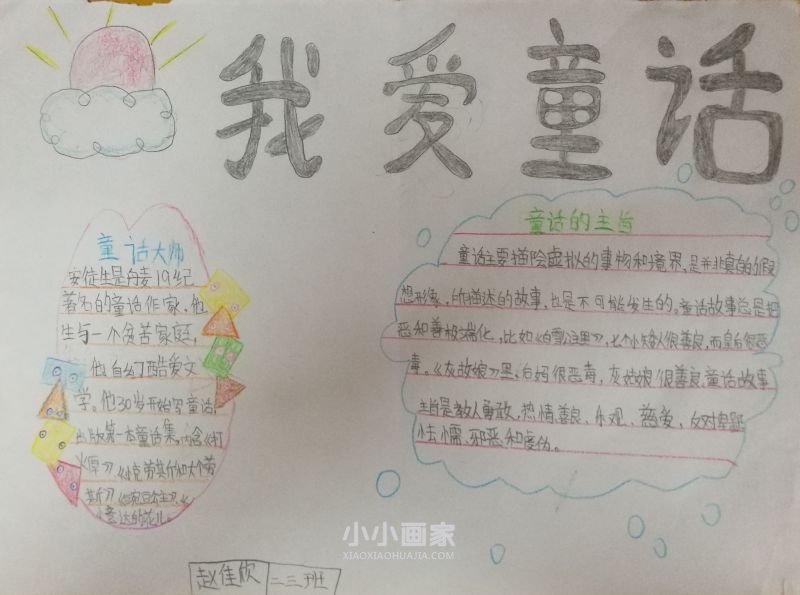 我爱童话
童话大师
安徒生是丹麦19纪
著名的童话作家，他
生与一个贫苦家庭，
他自幻酷爱文
学。他30岁开始写童话，
出版第一本童话集，内含《打
火匣》《小克劳斯和大克劳
斯》《豌豆公主》《
小意达的花儿。
童话的主旨
童话主要描绘虚拟的事物和境界，是并非真的假
想形象，所描述的故事，也是不可能发生的。童话故事总是把
恶和善极端化，比如《白雪公主里》，七个小矮人很善良，而皇后很恶
毒。《灰故娘》里，后妈很恶毒，灰姑娘很善良。童话故事
主旨是教人勇敢，热情、善良、乐观、慈爱，反对卑鄙
怯懦、邪恶和虚伪。
赵佳欣 二三班
小小画家
XIAOXIAOHUAJIA.COM